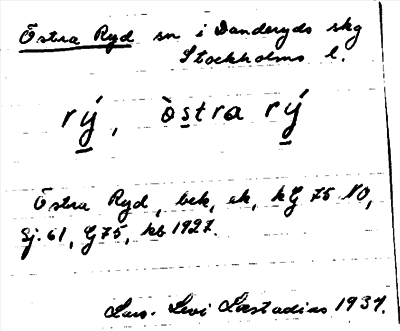 Östra Ryd sn i Danderyds skg
Stockholms l.
rý, òstra rý
Östra Ryd, bek, ek, kG 75 NO,
Sj. 61, G 75, kb 1927.
Lars-Levi Læstadius 1937.